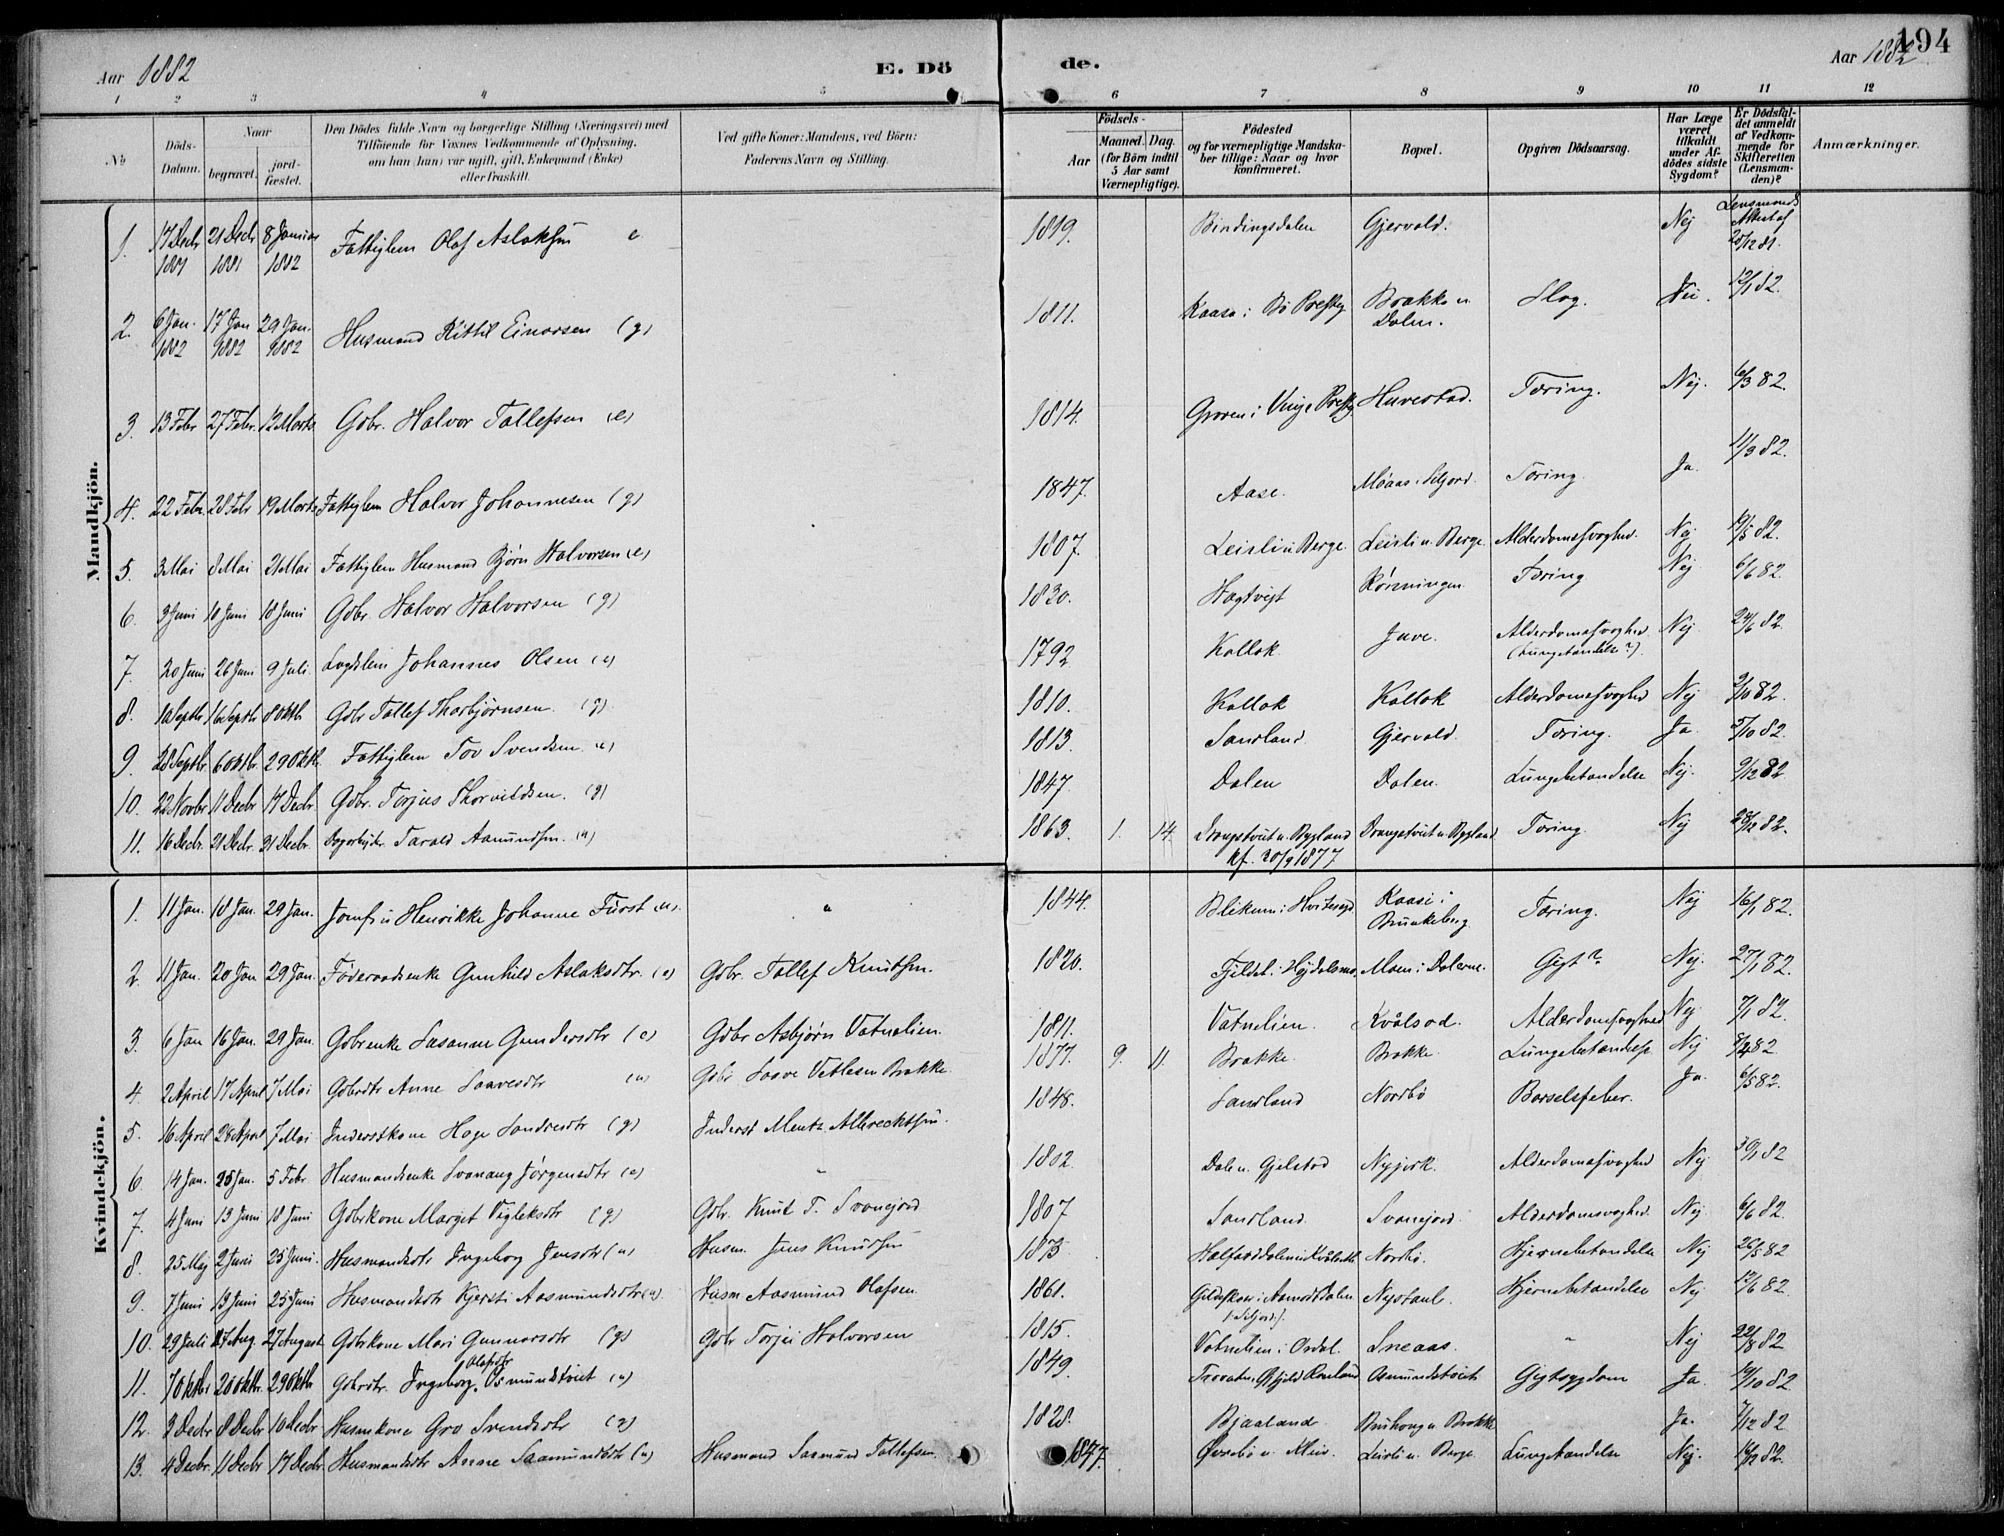 Aar 1882
E. Dö
de.
Aar 1882
194
1 2 3 4 5 6 7 8 9 10 11 12
No
Döds-Datum.
Naar
begravet.
jord-fæstet.
Den Dödes fulde Navn og borgerlige Stilling (Næringsvei) med
Tilföiende for Voxnes Vedkommende af Oplysning,
om han (hun) var ugift, gift, Enkemand (Enke)
eller fraskilt.
Ved gifte Koner: Mandens, ved Börn:
Faderens Navn og Stilling.
Födsels-
Aar
Maaned. Dag.
(for Börn indtil
5 Aar samt
Værnepligtige).
Födested
og for værnepligtige Mandska-
ber tillige: Naar og hvor
konfirmeret.
Bopæl.
Opgiven Dödsaarsag.
Har Læge
været
tilkaldt
under Af-
dödes sidste
Sygdom?
Er Dödsfal-
det anmeldt
af Vedkom-
mende for
Skifteretten
(Lensman-
den)?
Anmærkninger.
Mandkjön.
1. 17 Decb 1881 21 Decb 1881 8 Januar 1882 Fattiglem Olaf Aslaksen e 1819. Bindingsdalen Gjervald. Nej Lensmands Attest af 28/12 81.
2. 6 Jan. 1882 17 Jan 1882 29 Jan. 1882 Husmand Kittil Einarsen (g) 1811. Kaasa i Bö Prestg Brække u. Dalen. Slag. Nei. 12/1 82.
3. 13 Febr 27 Febr. 12 Marts Gdbr. Halvor Tallefsen (e) 1814. Groven i Vinje Prestg Huvestad. Tæring. Nej. 6/3 82.
4. 22 Febr. 28 Febr 19 Marts Fattiglem Halvor Johannesen (g) 1847. Aase. Moaas i Siljord. Tæring. Ja. 11/3 82.
5. 3 Mai 8 Mai 21 Mai Fattiglem Husmand Bjørn Halvorsen (e) 1807. Leisli u. Berge. Leisli u. Berge. Alderdomssvaghed. Nej 19/5 82.
6. 3 Juni 10 Juni 18 Juni Gdbr. Halvor Halvorsen (g) 1830. Hagtvejt Tæring Nej 6/6 82.
7. 20 Juni 26 Juni 9 Juli. Johannes Olsen (e) 1792 Kollok. Juve. Alderdomssvaghed. (Lungebetændelse?). Nej 24/6 82.
8. 10 Septb 16 Septb 8 Oktb Gdbr Tallef Thorbjørnsen. (g). 1810. Kollok Kollok Alderdomssvaghed Nej 9/10 82.
9. 28 Septbr. 6 Oktbr. 29 Oktb. Fattiglem Tov Svendsen (e) 1813. Sandland Gjervald. Tæring. Ja. 5/10 82.
10. 22 Novbr 11 Decbr 17 Decbr. Gdbr. Torjus Thorvildsen. (g) 1847. Dalen Dalen. Lungebetændelse Nej. 9/12 82
11. 16 Decbr. 21 Decbr. 31 Decbr. Dagarbejdr. Tarald Aamundsen. (u) 1863. 1. 14. Drangstveit u. Bygland kf. 30/9 1877 Drangstveit u. Bygland Tæring. Nej 28/12 82.
Kvindekjön.
1. 11 Jan. 18 Jan. 29 Jan. Jomfru Henrikke Johanne Fürst (u). " 1844. Blikum i Hviteseid Kaase i Brunkeberg Tæring. Nej 16/1 82.
2. 11 Jan. 20 Jan 29 Jan. Föderaadsenke Gunhild Aslaksdtr. (e) Gdbr. Tallef Knutsen. 1820. Fjeldet i Højdalsmo. Moen i Dalene. Gigt? Nej. 27/1 82.
3. 6 Jan 16 Jan. 29 Jan. Gdbrenke Susanne Gundersdtr (e) Gdbr Asbjørn Vatnelien. 1811. Vatnelien. Kvålsod. Alderdomssvaghed Nej 7/1 82.
4. 2 April 17 April 7 Mai Gdbrdtr Anne Saavesdtr (u) Gdbr Saave Vetlesen Brække. 1877. 9. 11. Brække. Brække. Lungebetændelse Nej 8/4 82
5. 16 April 28 April 7 Mai Inderstkone Hæge Sondresdtr (g) Inderst Mentz Albrechtsen. 1848. Sandland Nordbö Barselfeber. Ja. 6/5 82.
6. 14 Jan. 25 Jan. 5 Febr. Husmandsenke Svanaug Jørgensdtr (e) " 1802. Dalen u. Gjelstad Nyjerk. Alderdomssvaghed Nej 30/1 82
7. 4 Juni 13 Juni 18 Juni Gdbrkone Marget Vigleiksdtr (g) Gdbr. Knut T. Svanejord 1807 Sandland Svanejord. Alderdomsvaghed. Nej. 6/6 82.
8. 25 Maj 2 Juni 25 Juni. Husmandsdtr Ingeborg Jensdtr (u) Husm. Jens Knudsen 1875 Nordbö. Hjernebetændelse Nej 26/5 82
9. 7 Juni 13 Juni 25 Juni Husmandsdtr Kjersti Aasmundsdtr (u) Husm Aasmund Olafsen. 1861. (Siljord). Nystaul. Hjernebetændelse Nej. 12/6 82.
10. 29 Juli 27 Aug. 27 August Gdbrkone Mari Gunnarsdtr (g) Gdbr Torjei Halvorsen 1815. Vatnelien i Ordal. Sneaas. " Nej 22/8 82
11. 7 Oktbr 20 Oktbr. 29 Oktb Gdbrdtr. Ingeborg Olafsdtr Osmundstveit (u) 1849. Osmundstveit Gigtsygdom Ja. 14/10 82
12. 3 Decbr 8 Decbr 10 Decbr Husmkone Gro Svendsdtr (g) 1828. Bjaaland. Brækka Ja. 7/12 82
13. 4 Decbr. 11 Decbr 17 Decbr. Husmandsdtr Anne Saamundsdtr (u) Husmand Saamund Tallefsen. 1877. Leisli u. Berge. Lungebetændelse Nej. 16/12 82.